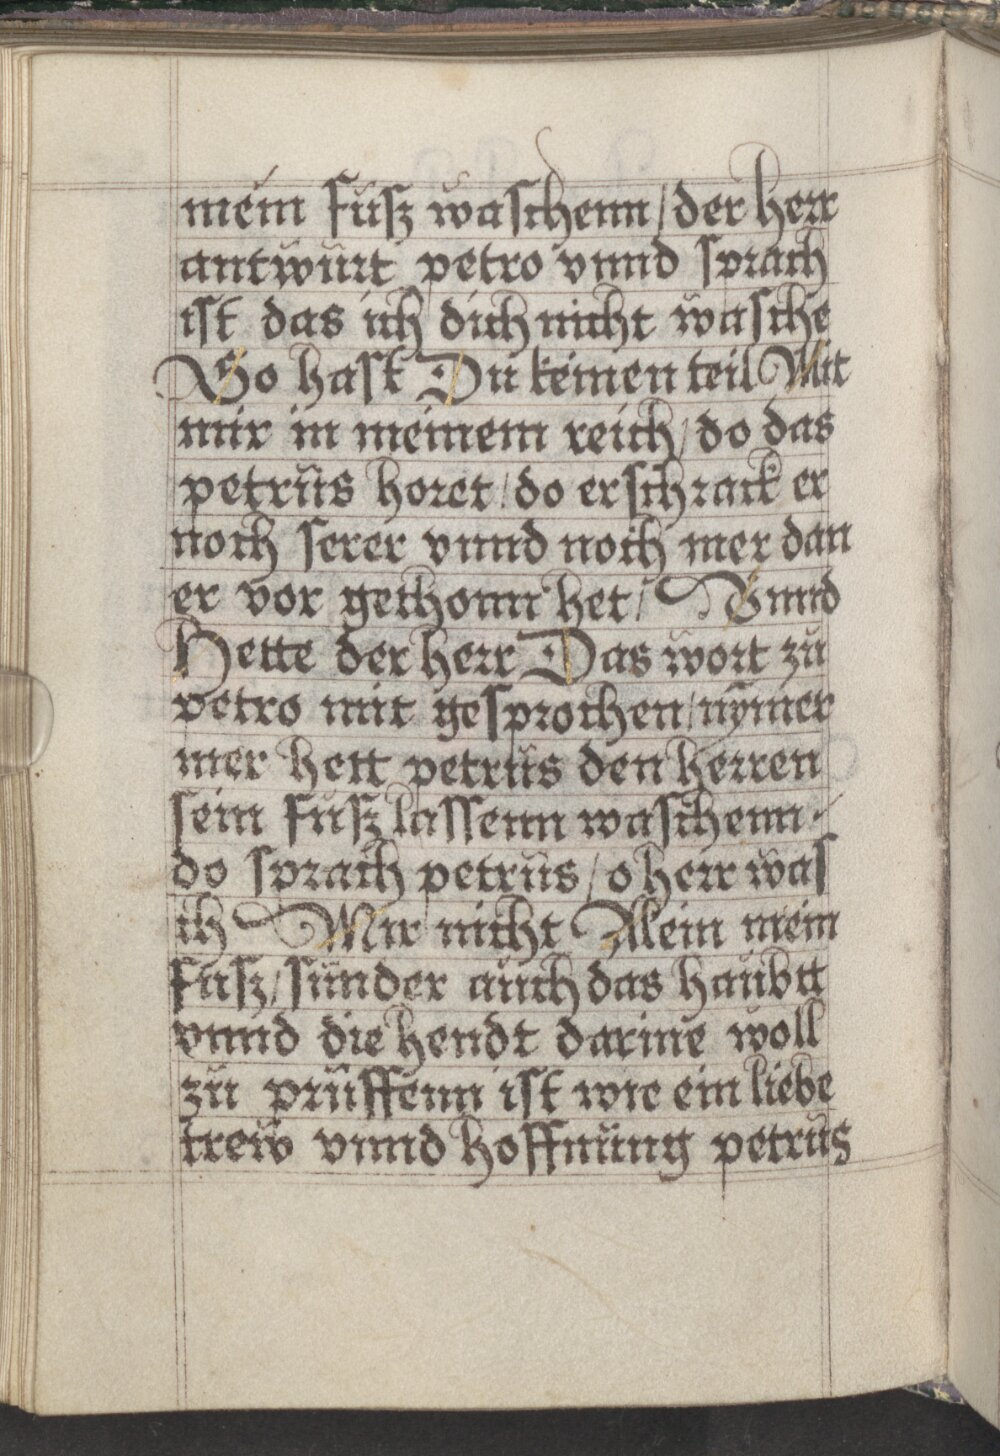 mein füsz waschenn / der herr
antwürt petro vnnd sprach
ist das ich dich nicht wasche
So hast Dü keinen teil Mit
mir in meinem reich / do das
petrüs horet / do erschrack er
noch serer vnnd noch mer dan
er vor gethonn het / Vnnd
Hette der herr Das wort zü
petro nit gesprochen / nÿmer
mer hett petrüs den herren
sein füsz lassenn waschenn /
do sprach petrüs / o herr was
ich Mir nicht Allein mein
füsz / sünder aüch das haübtt
vnnd die hendt darine woll
zü prüffenn ist wie ein liebe
trew vnnd hoffnüng petrüs